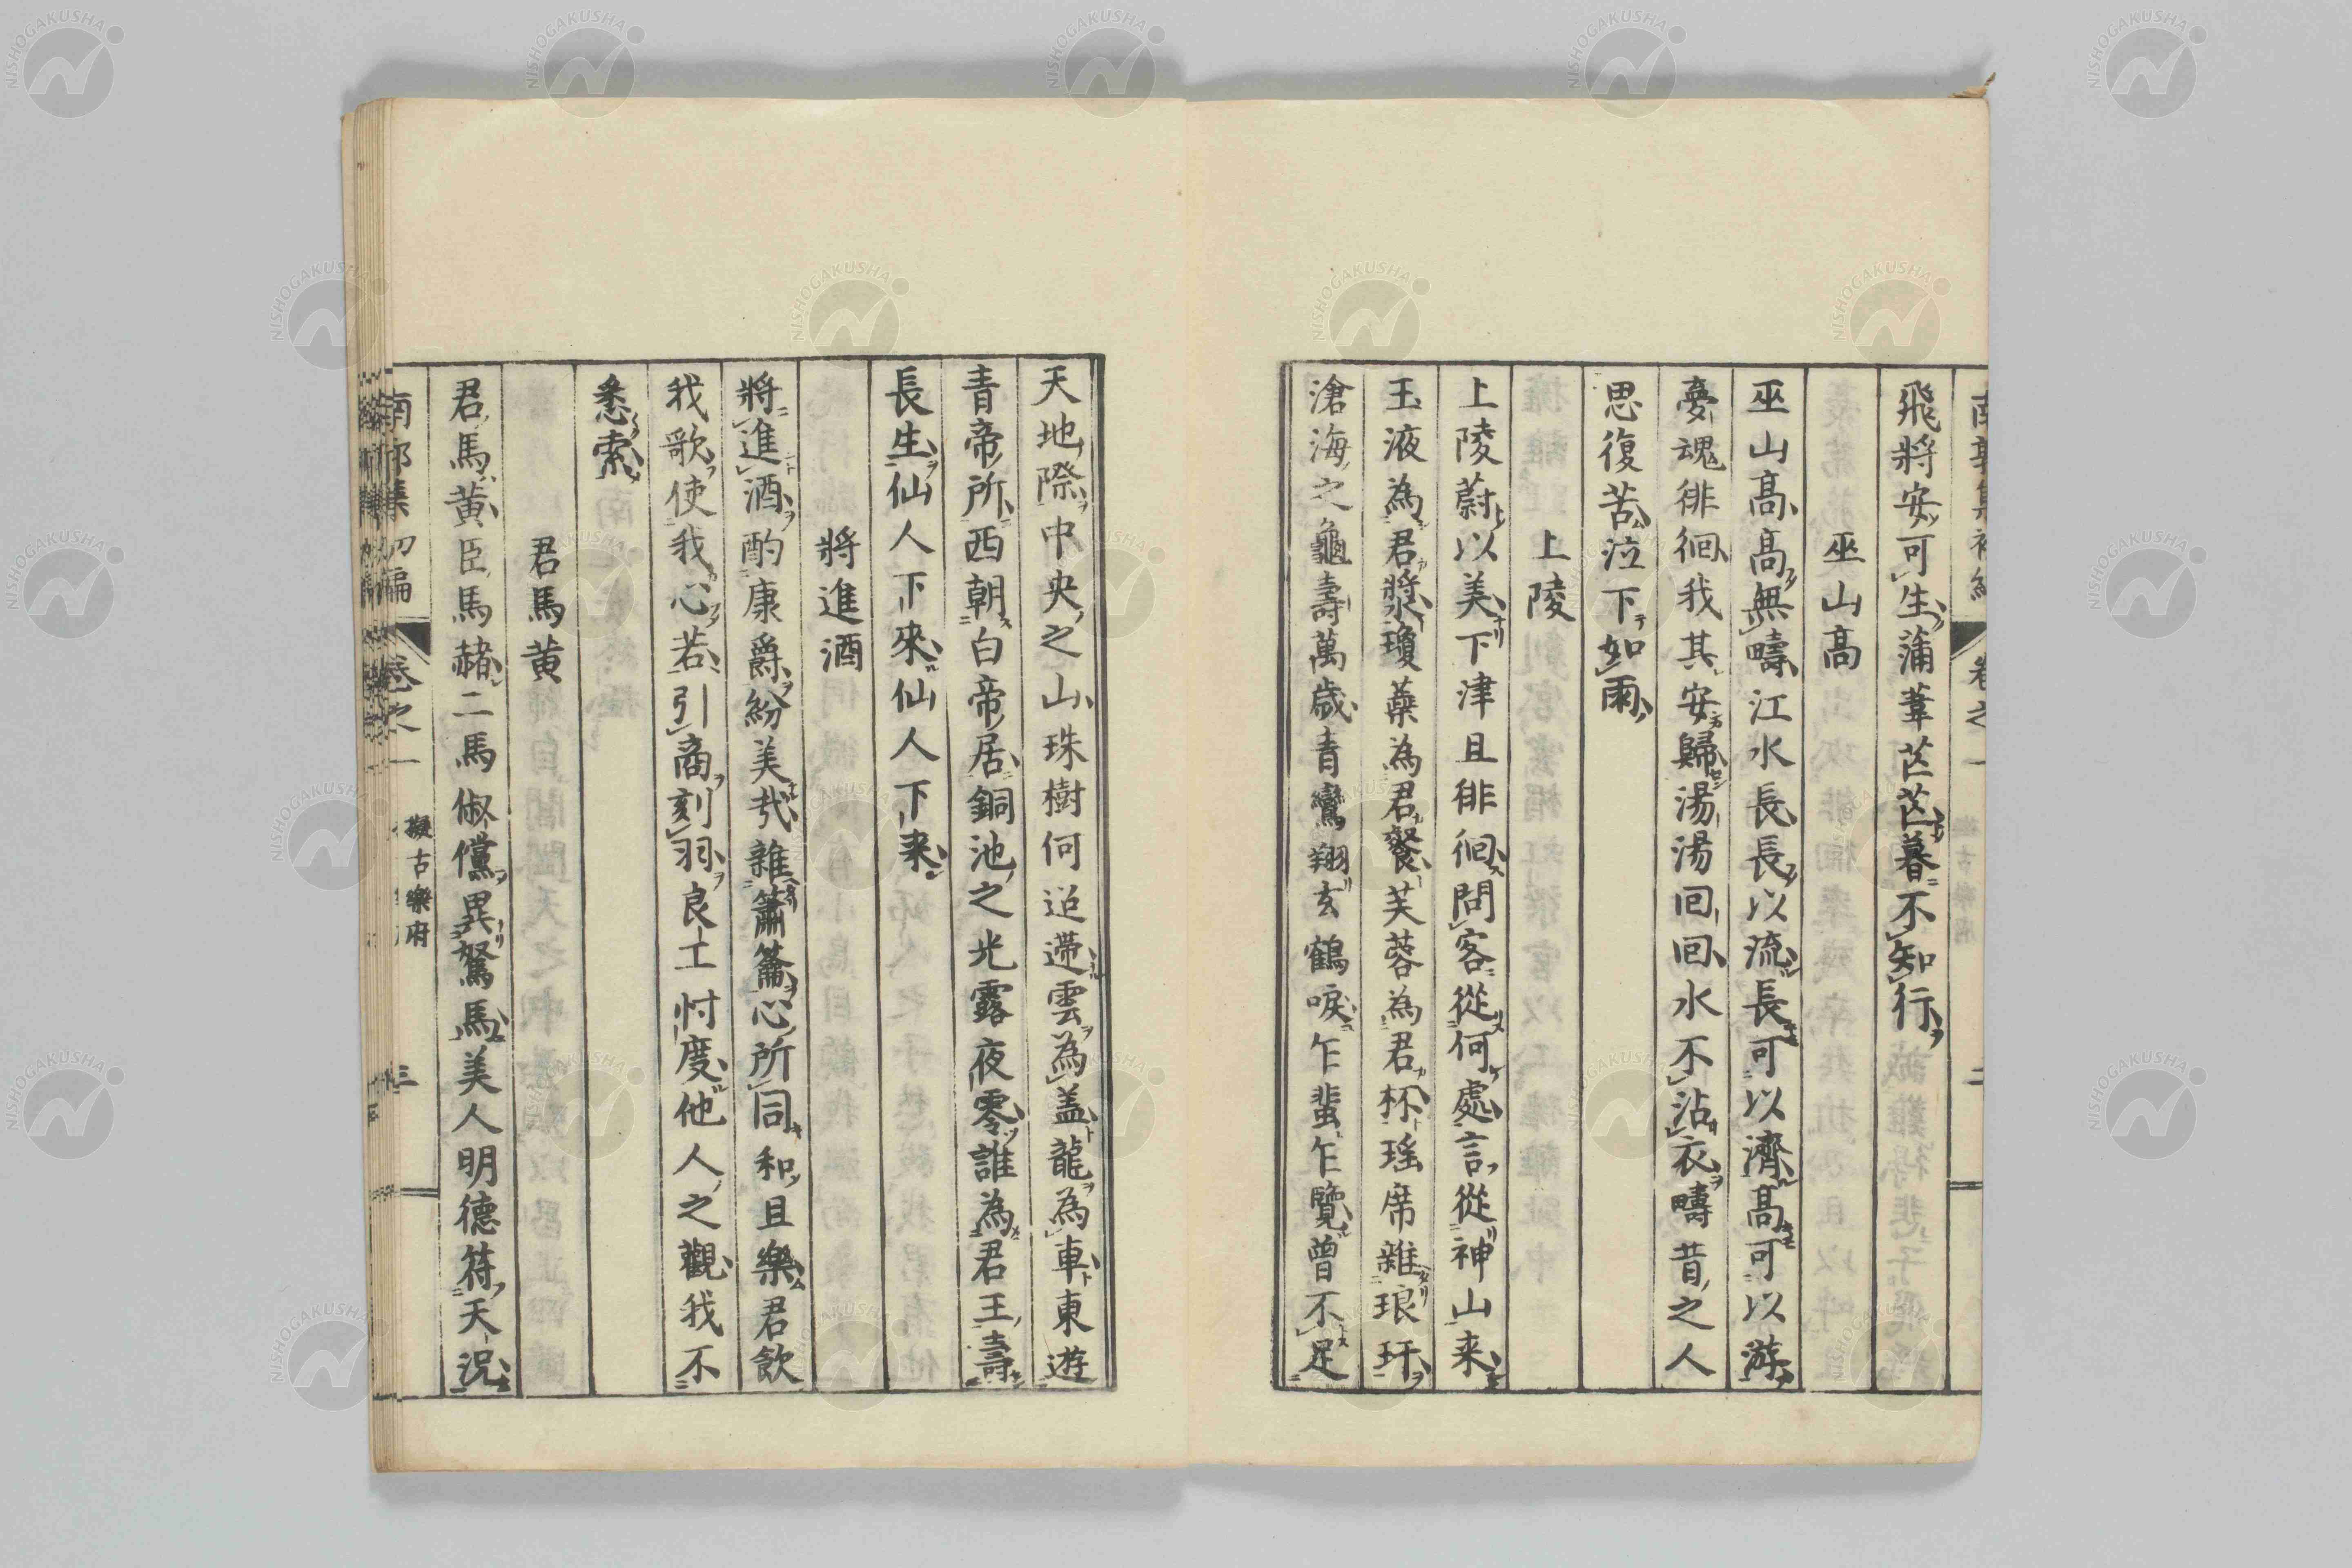 飛將安可生蒲葦芒芒暮不知行
巫山高
巫山高高無疇江水長長以流長可以濟高可以游
夢魂徘徊我其安歸湯湯回回水不沾衣疇昔之人
思復苦泣下如雨
上陵
上陵蔚以美下津且徘徊問客從何處言從神山来
玉液為君漿瓊蘂為君餐芙蓉為君杯瑶席雜琅玕
滄海之龜壽萬歳青鸞翔玄鶴唳乍蜚乍覽曾不足
天地際中央之山珠樹何迢遰雲為盖龍為車東遊
青帝所西朝白帝居銅池之光露夜零誰為君王壽
長生仙人下來仙人下来
將進酒
將進酒酌康爵紛美哉雜簫籥心所同和且樂君飲
我歌使我心若引商刻羽良工忖度他人之觀我不
悉索
君馬黄
君馬黄臣馬赭二馬俶儻異駑馬美人明德符天況
南郭集初編 卷之一 擬古樂府 三
NISHOGAKUSHA